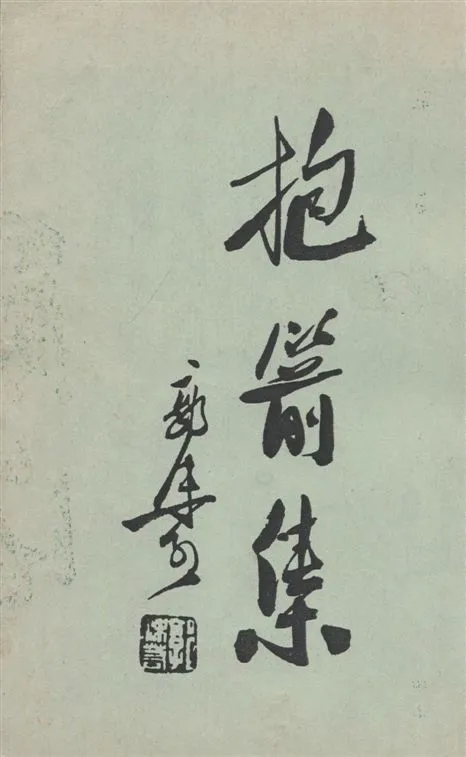 抱箭集
郭沫若
郭沫若